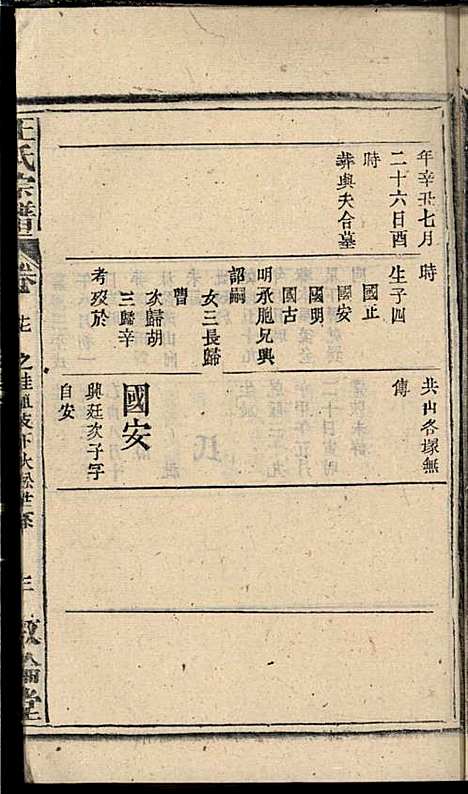 年辛丑七月
二十六日酉
時
葬與夫合墓
時
生子四
國正
國安
國明
國古
明承胞兄興
詔嗣
女三長歸
曹
次歸胡
三歸辛
考歿於
共山各塚無
傳
國安
興廷次子字
自安
王氏宗譜
卷
之桂
支下大松世系
三
敦倫堂